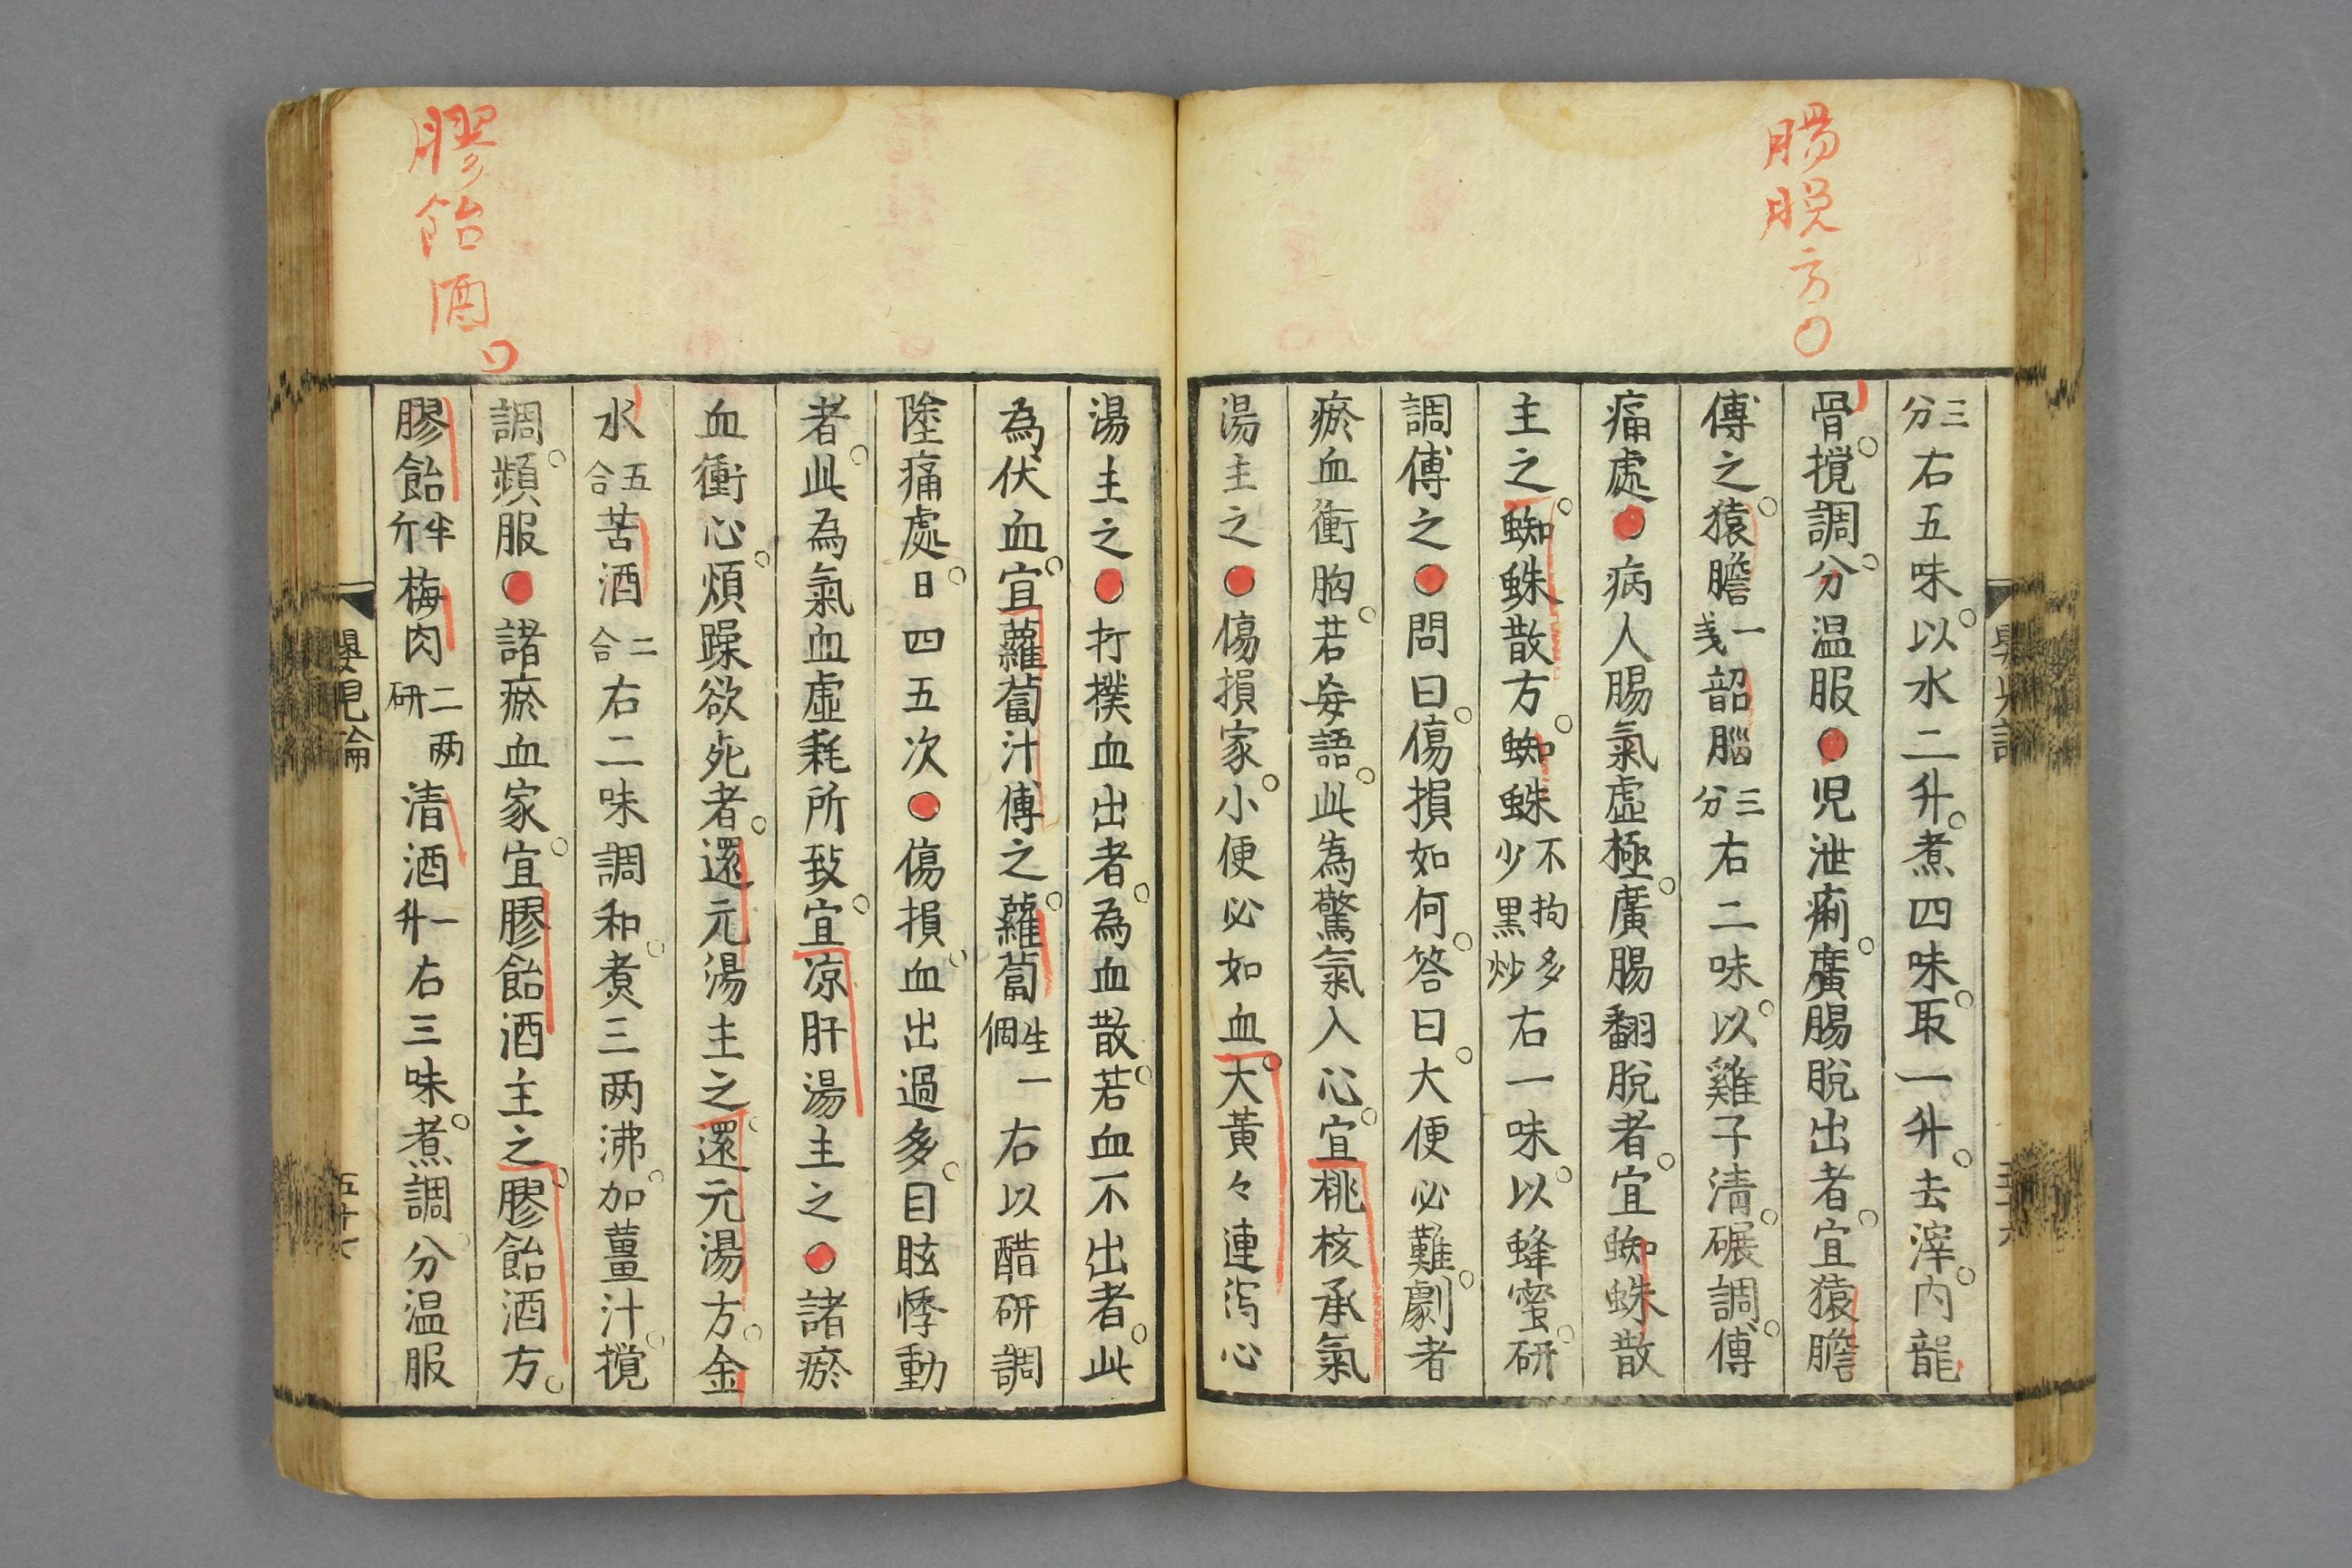 腸脱方〇
三分右五味以水二升煮四味取一升去滓内龍
骨攪調分温服●児泄痢廣腸脱出者宜猿膽
傅之猿膽一戔韶腦三分右二味以雞子清碾調傅
痛處●病人腸氣虛極廣腸翻脱者宜蜘蛛散
主之蜘蛛散方蜘蛛不拘多少黒炒右一味以蜂蜜研
調傅之●問曰傷損如何答曰大便必難劇者
瘀血衝胸若妄語此為驚氣入心宜桃核承氣
湯主之●傷損家小便必如血大黃々連泻心
湯主之●打撲血出者為血散若血不出者此
為伏血宜蘿蔔汁傅之蘿蔔生一個右以醋研調
塗痛處日四五次●傷損血出過多目眩悸動
者此為氣血虛耗所致宜凉肝湯主之●諸瘀
血衝心煩躁欲死者還元湯主之還元湯方金
水五合苦酒二合右二味調和煮三两沸加薑汁攪
調頻服●諸瘀血家宜膠飴酒主之膠飴酒方
膠飴半斤梅肉二两研清酒一升右三味煮調分温服
膠飴酒〇
嬰児論
五十七